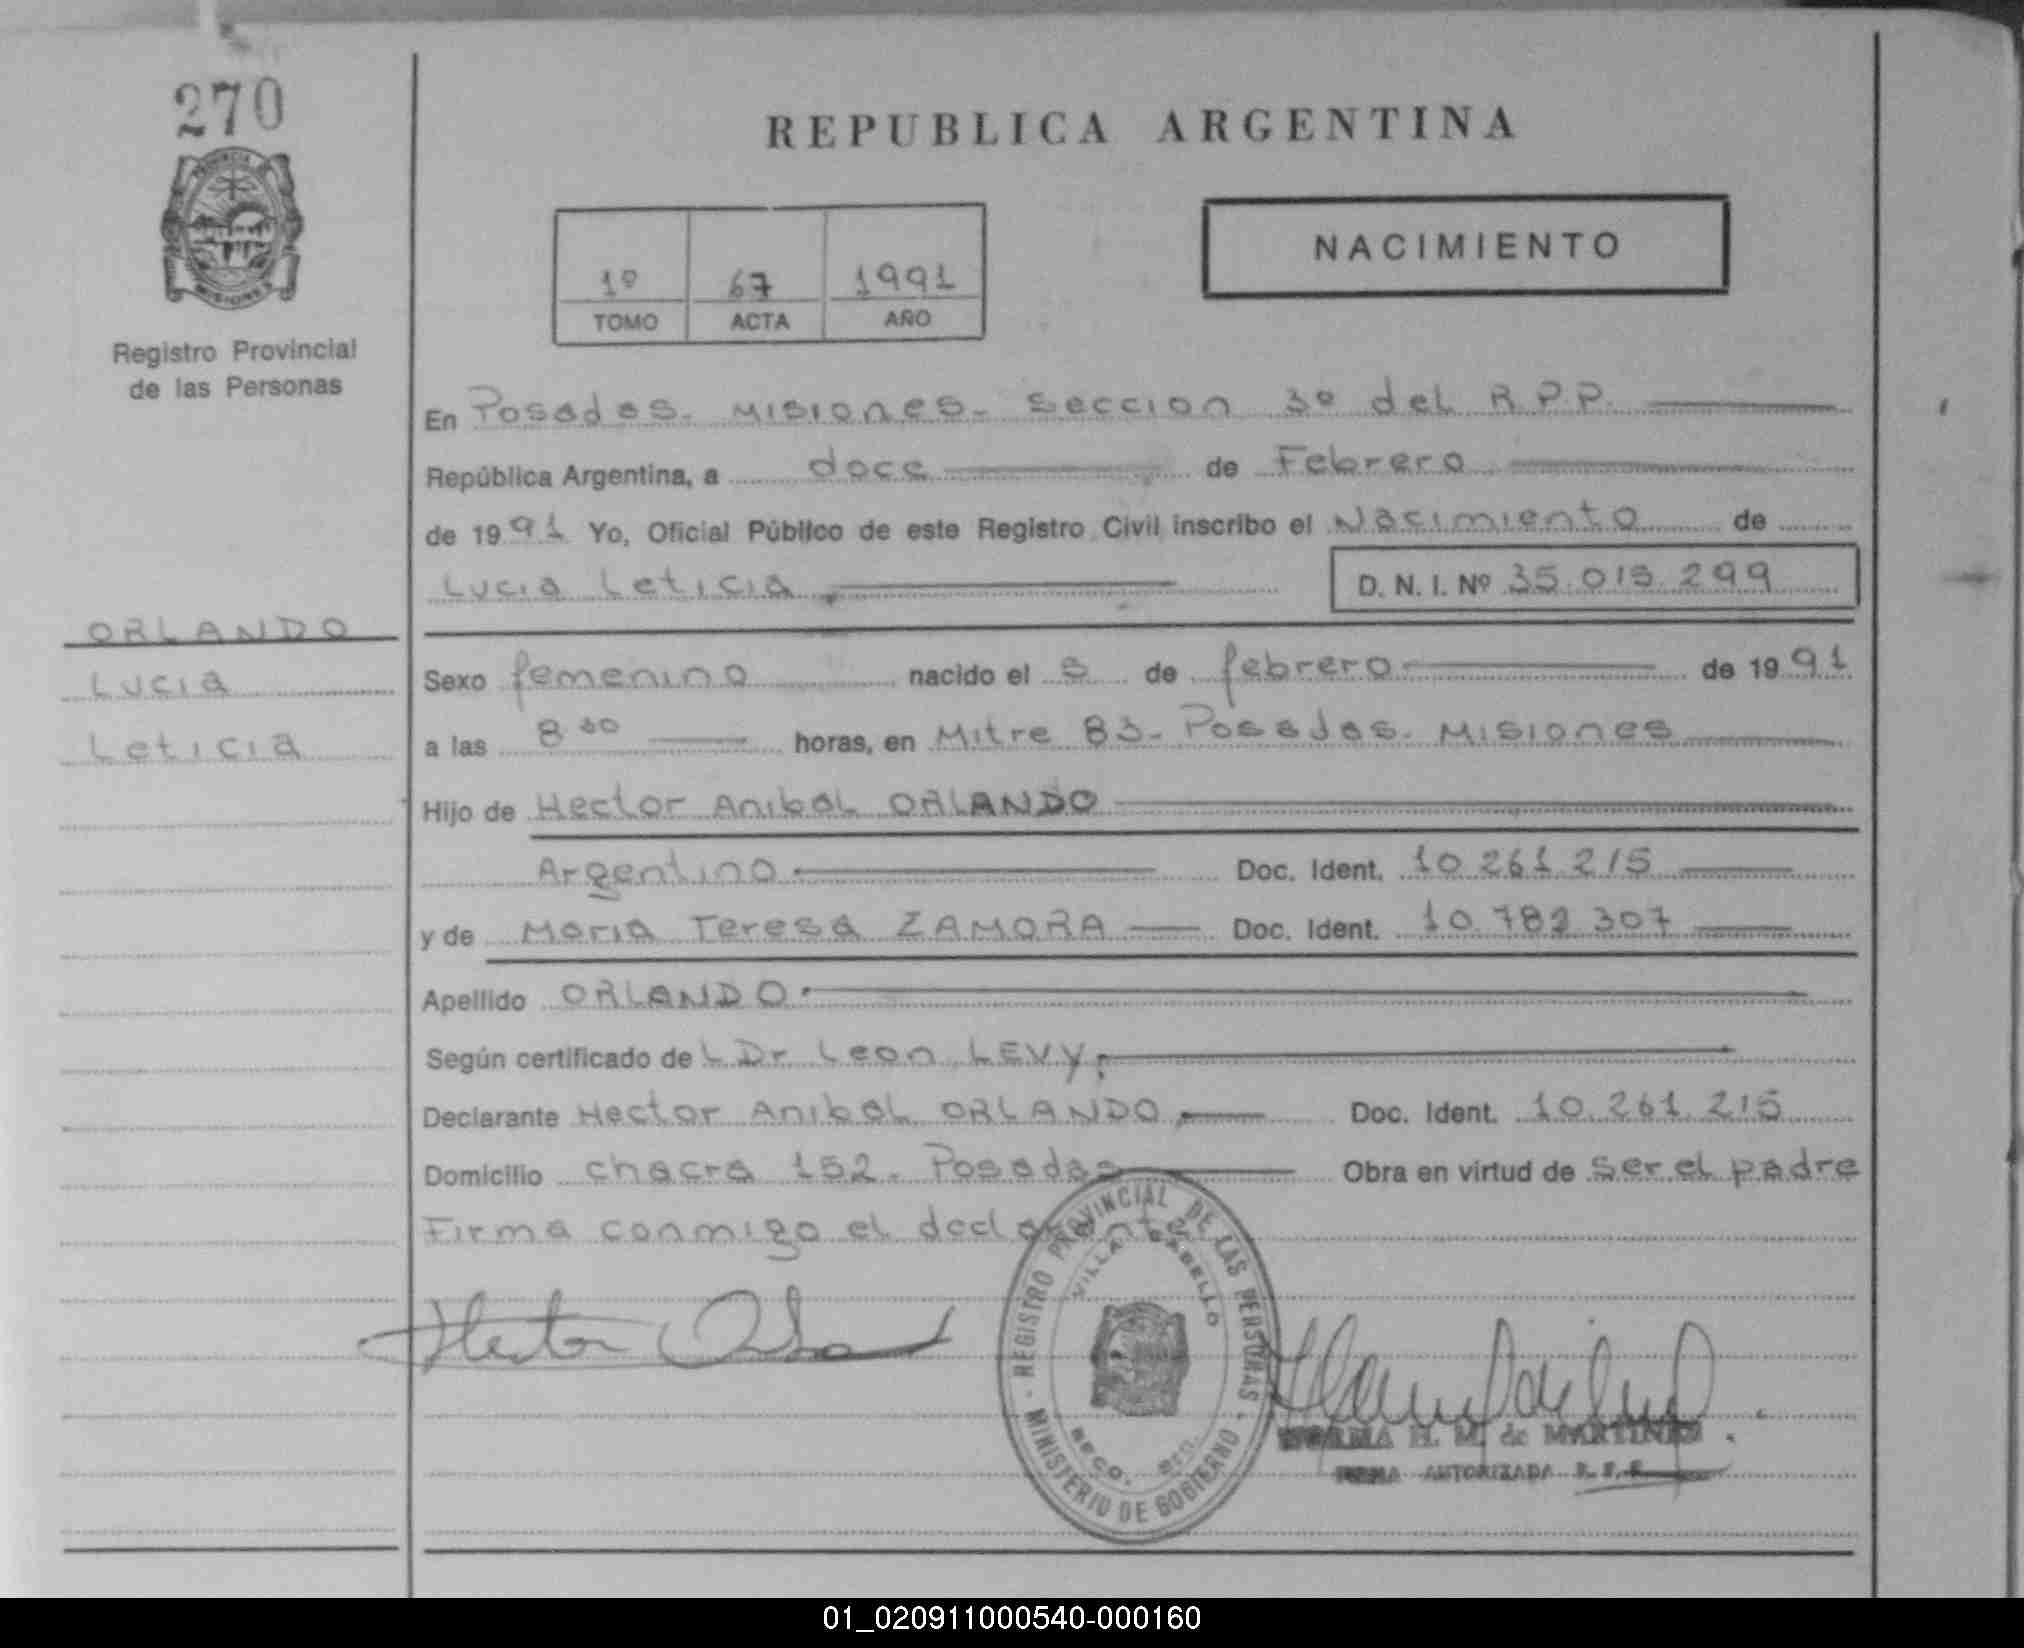 270
PROVINCIA
MISIONES
Registro Provincial
de las Personas
ORLANDO
Lucia
Leticia
REPUBLICA ARGENTINA
1º 67 1991
TOMO ACTA AÑO
NACIMIENTO
En Posadas. Misiones. Seccion 3º del R.P.P.
República Argentina, a doce de Febrero
de 1991 Yo, Oficial Público de este Registro Civil inscribo el Nacimiento de
Lucia Leticia D. N. I. Nº 35.015.299
Sexo femenino nacido el 5 de febrero de 1991
a las 8 30 horas, en Mitre 83. Posadas. Misiones
Hijo de Hector Anibal ORLANDO
Argentino Doc. Ident. 10.261.215
y de Maria Teresa ZAMORA Doc. Ident. 10.782.307
Apellido ORLANDO
Según certificado de L Dr Leon LEVY.
Declarante Hector Anibal ORLANDO Doc. Ident. 10.261.215
Domicilio chacra 152. Posadas Obra en virtud de ser el padre
Firma conmigo el declarante
REGISTRO PROVINCIAL DE LAS PERSONAS
MINISTERIO DE GOBIERNO
VILLA CABELLO
Hector
NORMA H. M. de MARTINEZ
FIRMA AUTORIZADA
01_020911000540-000160